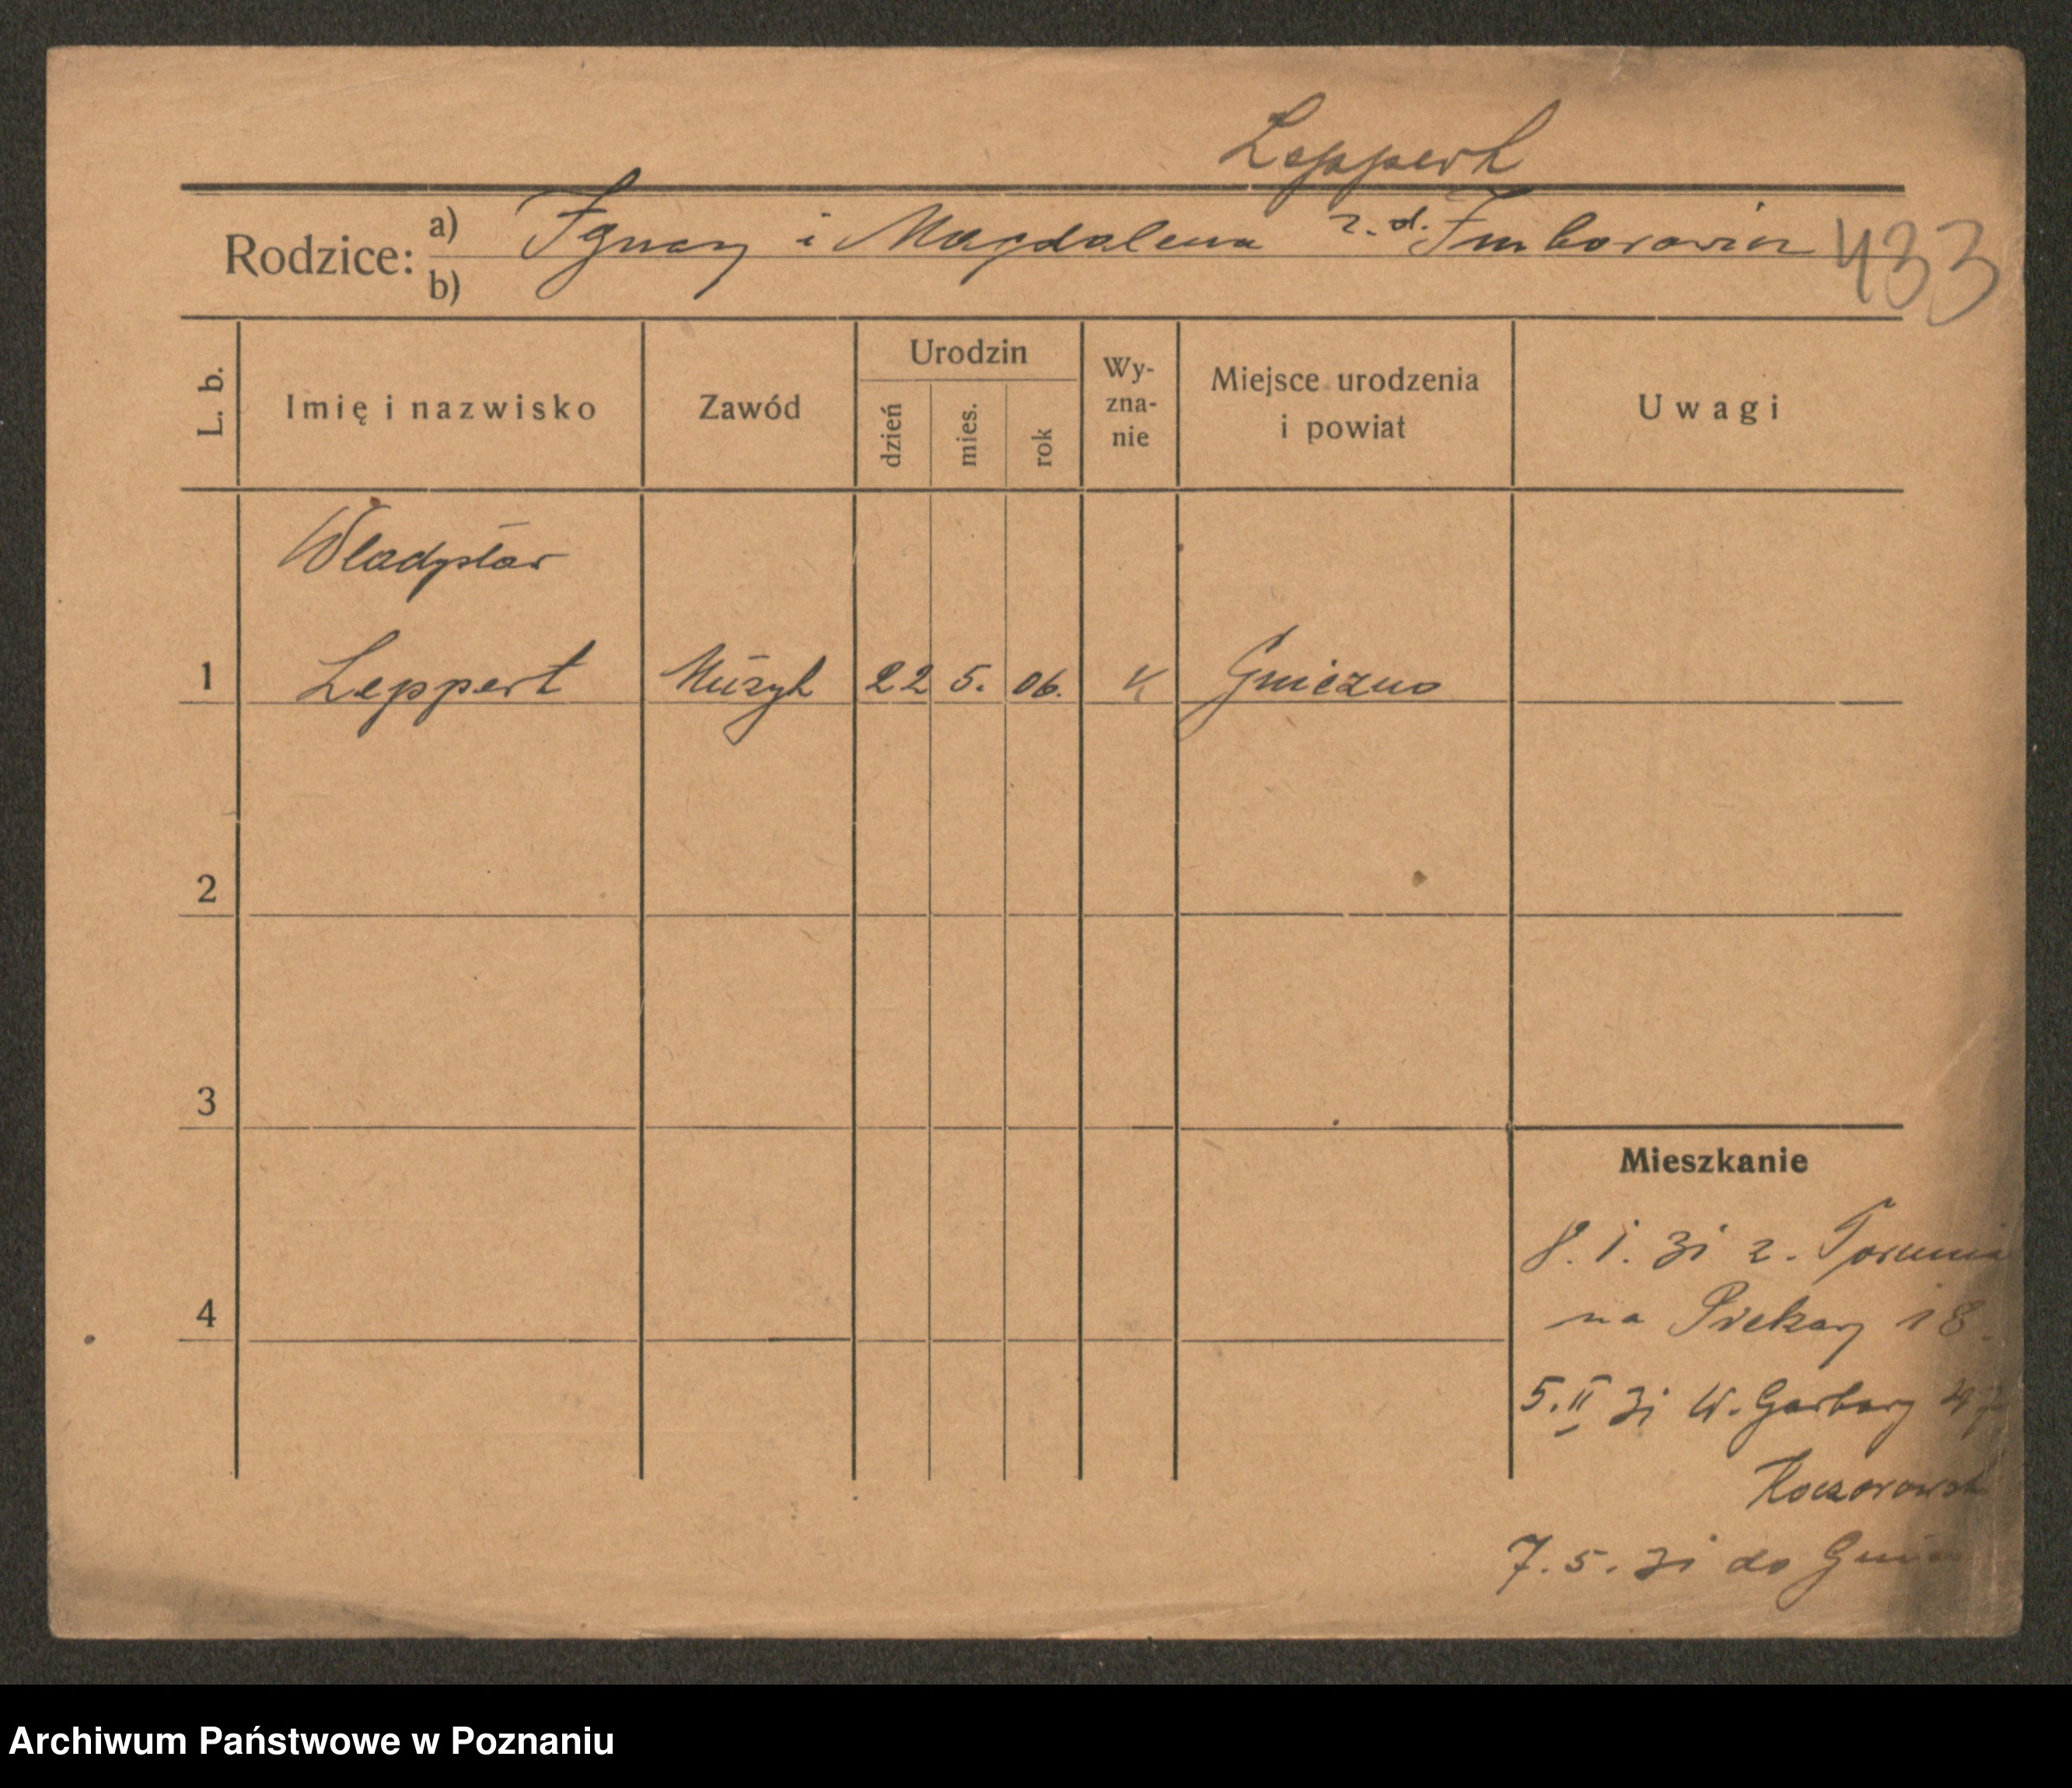 Leppert
Rodzice: a) Ignacy i Magdalena z. d. Imborowicz
b)
433
L. b. Imię i nazwisko Zawód Urodzin dzień mies. rok Wy-zna-nie Miejsce urodzenia i powiat Uwagi
Władysław
1 Leppert Muzyk 22 5. 06. K Gniezno
2
3
Mieszkanie
8. 1. 31 z. Torunia
4
na Piekary 18.
5. II 31 W. Garbary
7. 5. 31 do
Archiwum Państwowe w Poznaniu